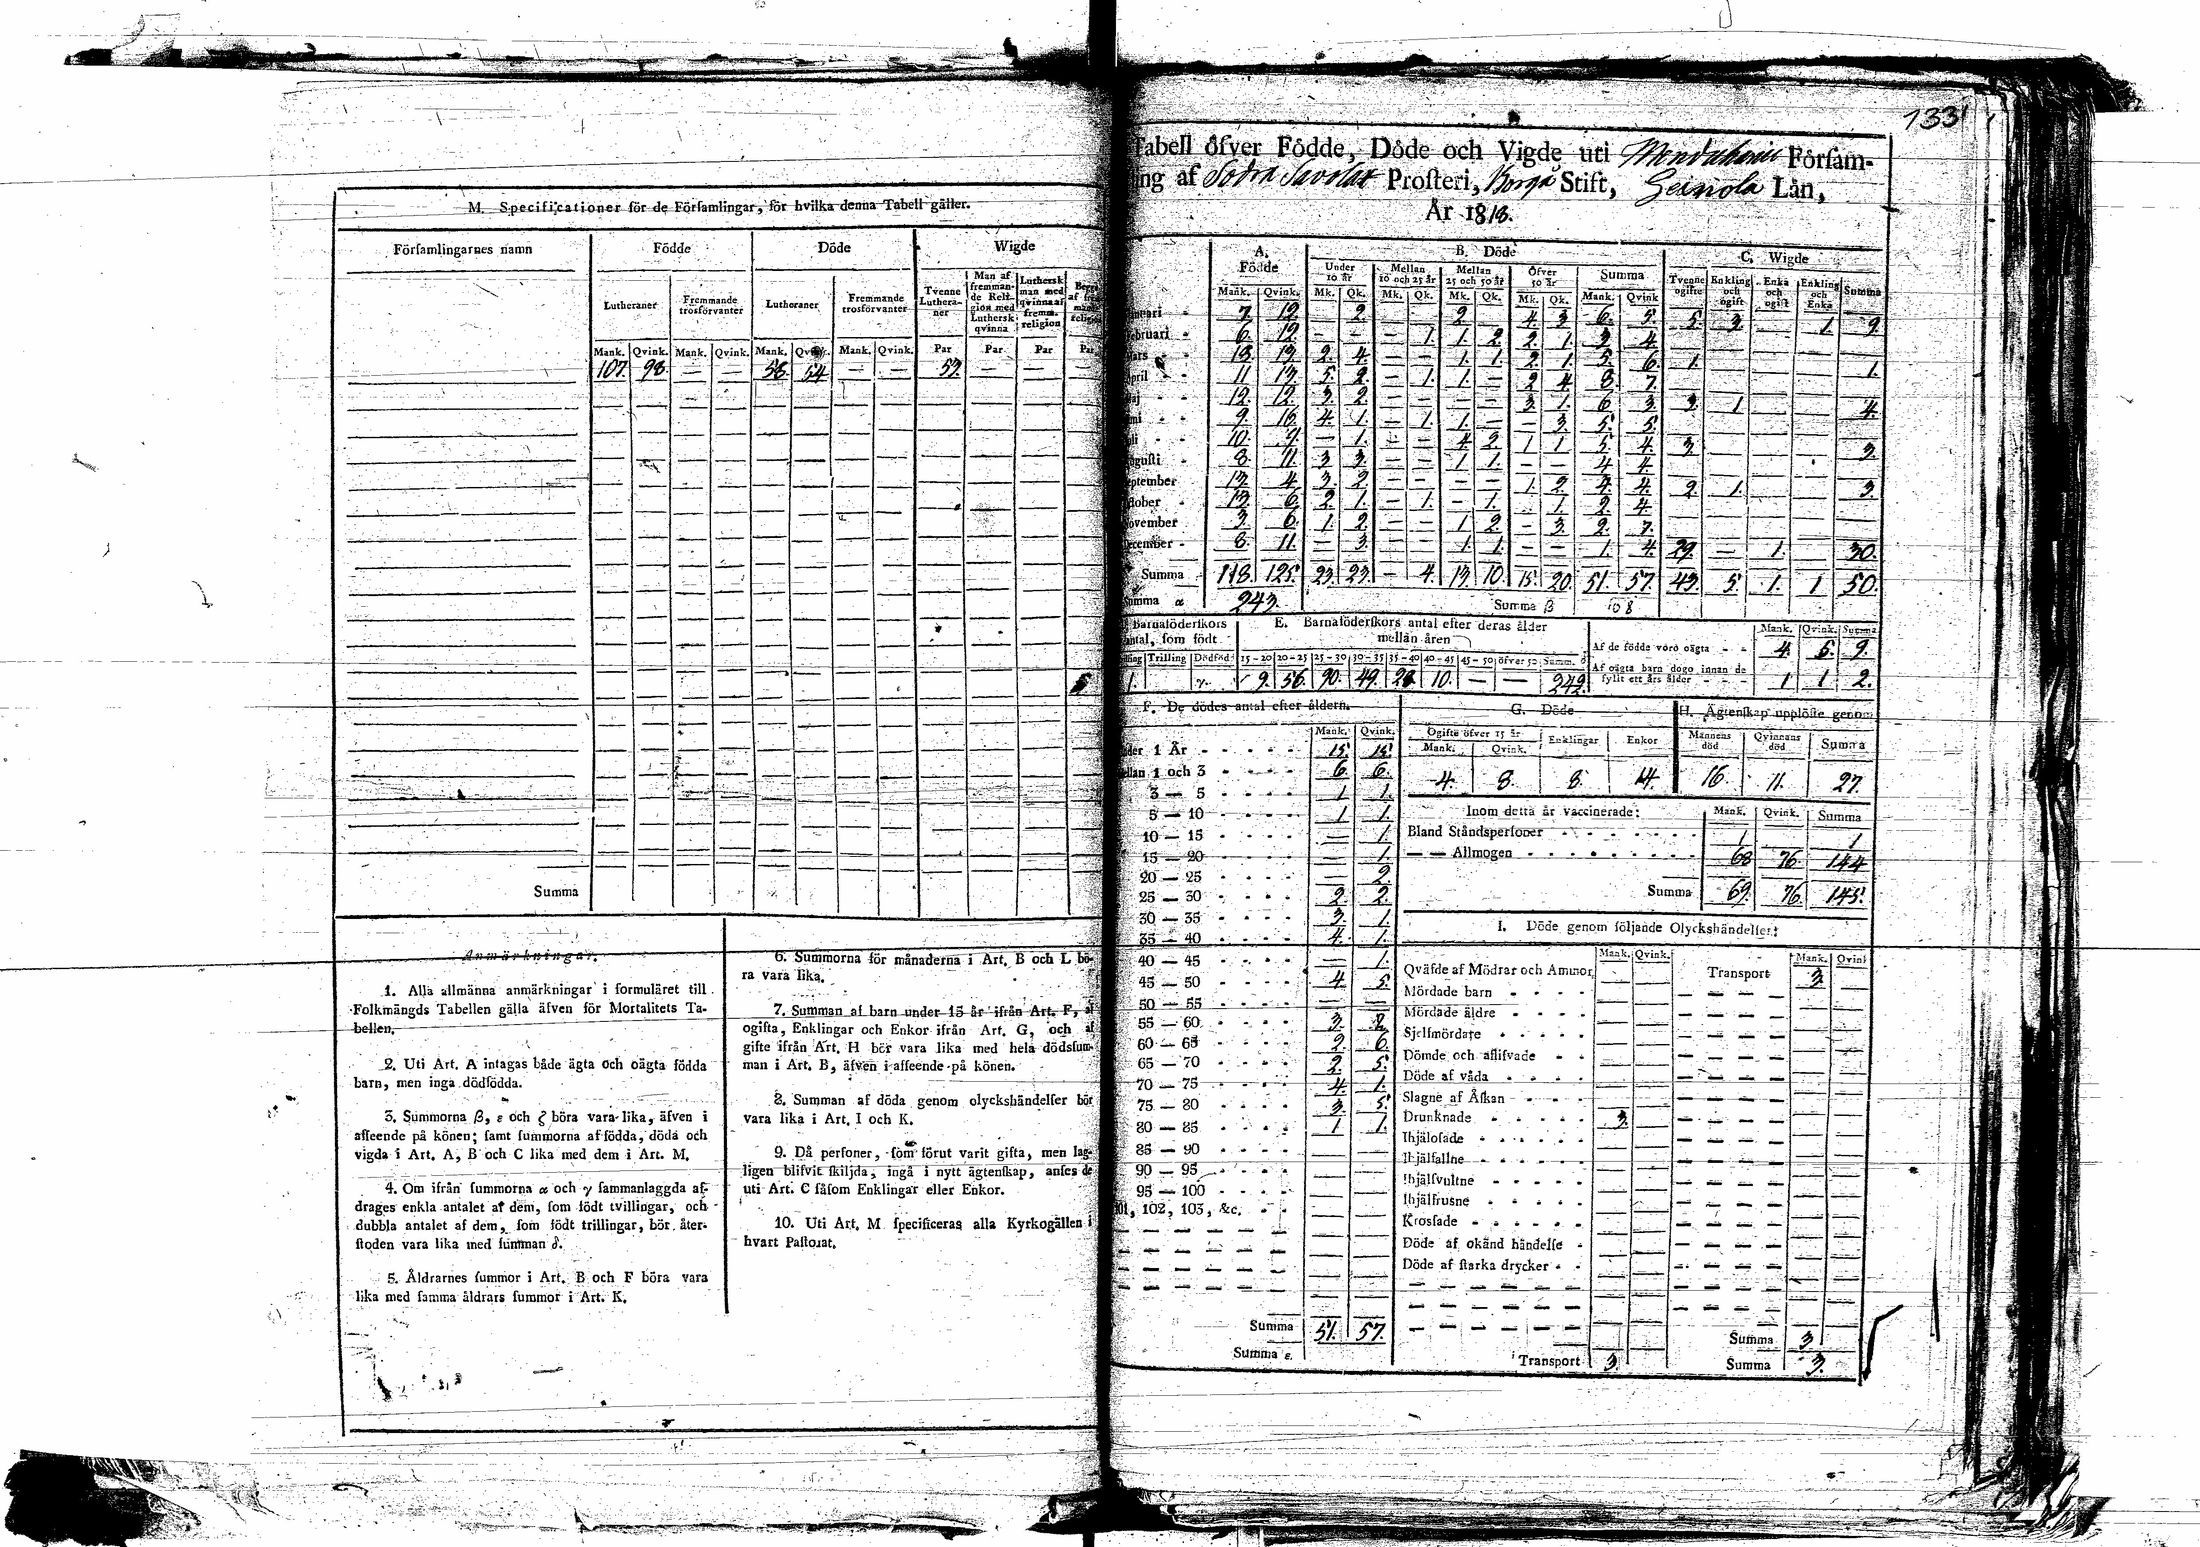 M. Specificationer för de Församlingar, för hvilka denna Tabell gäller.
Församlingarnes namn Födde Döde Wigde
Lutheraner Fremmande trosförvanter Lutheraner Fremmande trosförvanter Tvenne Lutheraner Man af fremmande Religion med Luthersk qvinna Luthersk man med qvinna af fremm. religion
Mank. Qvink. Mank. Qvink. Mank. Qvink. Mank. Qvink. Par Par Par Par
107. 98. — — 58. 54 — — 57. — — —
Summa
Anmärkningar.
1. Alla allmänna anmärkningar i formuläret till
Folkmängds Tabellen gälla äfven för Mortalitets Ta-
bellen.
2. Uti Art. A intagas både ägta och oägta födda
barn, men inga dödfödda.
3. Summorna β, ε och ζ böra vara lika, äfven i
afseende på könen; samt summorna af födda, döda och
vigda i Art. A, B och C lika med dem i Art. M.
4. Om ifrån summorna α och γ sammanlaggda af-
drages enkla antalet af dem, som födt tvillingar, och
dubbla antalet af dem, som födt trillingar, bör åter-
stoden vara lika med summan δ.
5. Åldrarnes summor i Art. B och F böra vara
lika med samma åldrars summor i Art. K.
6. Summorna för månaderna i Art. B och L bö-
ra vara lika.
7. Summan af barn under 15 år ifrån Art. F, af
ogifta, Enklingar och Enkor ifrån Art. G, och af
gifte ifrån Art. H bör vara lika med hela dödsum-
man i Art. B, äfven i afseende på könen.
8. Summan af döda genom olyckshändelser bör
vara lika i Art. I och K.
9. Då personer, som förut varit gifta, men lag-
ligen blifvit skiljda, ingå i nytt ägtenskap, anses de
uti Art. C såsom Enklingar eller Enkor.
10. Uti Art. M specificeras alla Kyrkogällen i
hvart Pastorat.
133
Tabell öfver Födde, Döde och Vigde uti Församling
af Södra Savolax Prosteri, Borgå Stift, Heinola Län,
År 1818.
A. Födde B. Döde C. Wigde
Under 10 år Mellan 10 och 25 år Mellan 25 och 50 år Öfver 50 år Summa Tvenne ogifte Enkling och ogift Enka och ogift Enkling och Enka Summa
Mank. Qvink. Mk. Qk. Mk. Qk. Mk. Qk. Mk. Qk. Mank. Qvink
7. 12. — 2. — — 2. — 4. 3. 6. 5. 5. 3. 1. 9.
6. 12. — — — 1. 1. 2. 2. 1. 3. 4.
2. 4. — — 1. 1. 2. 1. 5. 6. 1. 1.
April 11. 5. 2. — 1. 1. — 2. 4. 8. 7.
12. 12. 3. 2. — — — — 3. 1. 6. 3. 3. 1. 4.
9. 16. 4. 1. — 1. 1. — — 3. 5. 5.
10. 9. — 1. — — 4. 2. 1 1 5. 4. 3. 3.
8. 11. 3. 3. — — 1 1. — — 4 4.
September 4. 3. 2. — — — — 1. 2. 4. 4. 2. 1. 3.
October 6. 2. 1. — 1. — 1. — 1. 2. 4.
November 3. 6. 1. 2. — — 1. 2. — 3. 2. 7.
December 8. 11. — 3. — — 1. 1. — — 1. 4. 29. — 1. 30.
Summa 118. 125. 23. 23. — 4. 13. 10. 15. 20. 51. 57. 43. 5. 1. 1 50.
Summa α 243. Summa β 108
Barnaföderskors antal, som födt E. Barnaföderskors antal efter deras ålder mellan åren
Trilling Dödföd 15—20 20—25 25—30 30—35 35—40 40—45 45—50 öfver 50 Summ. δ
1. 9. 56. 90. 49. 28. 10. — — 242.
Mank. Qvink. Summa
Af de födde voro oägta - - 4. 5. 9.
Af oägta barn dogo innan de fyllt ett års ålder - - - 1 1 2.
F. De dödes antal efter åldern.
Mank. Qvink.
Under 1 År 15. 15.
Mellan 1 och 3 6. 6.
3 — 5 1 1.
5 — 10 1 1.
10 — 15 — 1.
15 — 20 — 1.
20 — 25 — 2.
25 — 30 2. 2.
30 — 35 3. 1.
35 — 40 4. 1.
40 — 45 — 1.
45 — 50 4. 5.
50 — 55 — —
55 — 60 3. 2.
60 — 65 2. 6.
65 — 70 2. 5.
70 — 75 4. 1.
75 — 80 3. 5.
80 — 85 1 1.
85 — 90
90 — 95
95 — 100
101, 102, 103, &c.
Summa 51. 57.
Summa ε.
G. Döde
Ogifte öfver 15 år Enklingar Enkor
Mank. Qvink.
4. 8. 8. 14.
H. Ägtenskap upplöste genom
Mannens död Qvinnans död Summa
16. 11. 27.
Inom detta år vaccinerade: Mank. Qvink. Summa
Bland Ståndspersoner 1 1
— — Allmogen 68 76. 144
Summa 69. 76. 145.
I. Döde genom följande Olyckshändelser:
Mank. Qvink. Mank. Qvink
Qväfde af Mödrar och Ammor Transport 3.
Mördade barn
Mördade äldre
Sjelfmördare
Dömde och aflifvade
Döde af våda
Slagne af Åskan
Drunknade 3.
Ihjälosade
Ihjälfallne
Ihjälsvultne
Ihjälfrusne
Krossade
Döde af okänd händelse
Döde af starka drycker
Summa 3
Transport 3. Summa 3.